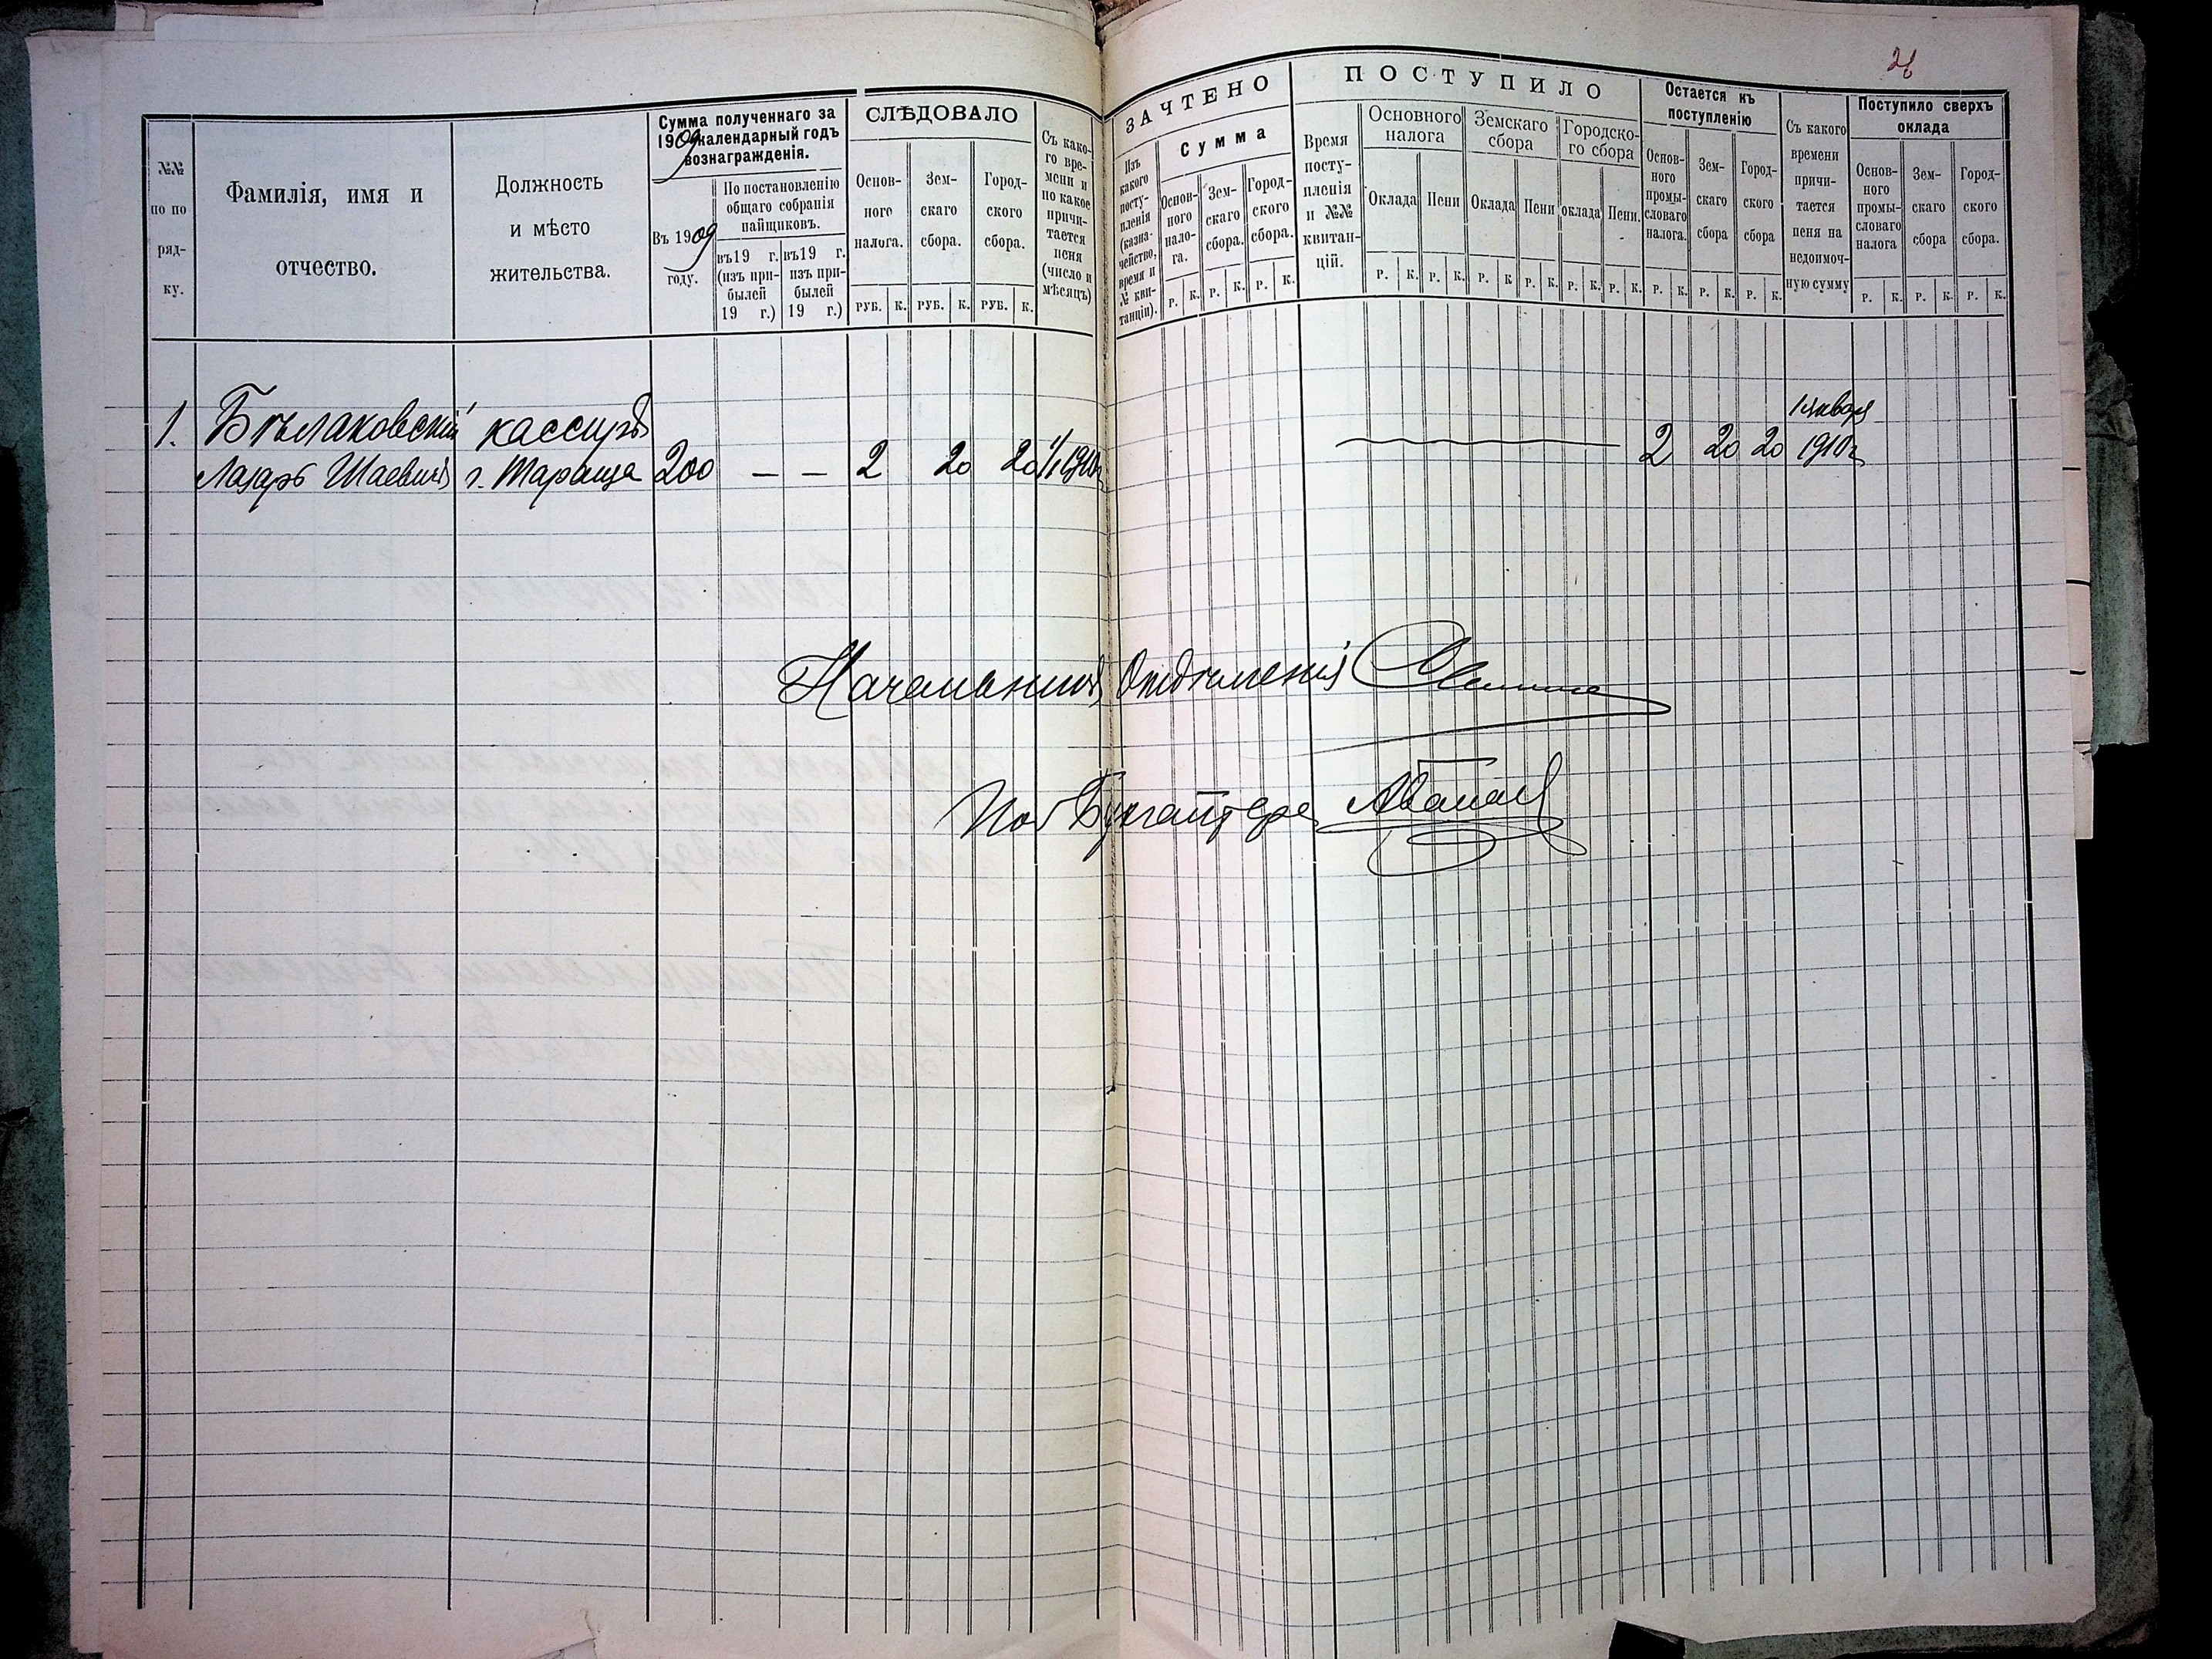 26
№№
по по
ряд-
ку.
Фамилія, имя и
отчество.
Должность
и мѣсто
жительства.
Сумма полученнаго за
1909 календарный годъ
вознагражденія.
Въ 1909
году.
По постановленію
общаго собранія
пайщиковъ.
въ19 г.
(изъ при-
былей
19 г.)
въ19 г.
изъ при-
былей
19 г.)
СЛѢДОВАЛО
Основ-
ного
налога.
Зем-
скаго
сбора.
Город-
ского
сбора.
РУБ. К. РУБ. К. РУБ. К.
Съ како-
го вре-
мени и
по какое
причи-
тается
пеня
(число и
мѣсяцъ)
ЗАЧТЕНО
Изъ
какого
посту-
пленія
(казна-
чейство,
время и
№ кви-
танціи).
Сумма
Основ-
ного
нало-
га.
Зем-
скаго
сбора.
Город-
ского
сбора.
Р. К. Р. К. Р. К.
ПОСТУПИЛО
Время
посту-
пленія
и №№
квитан-
цій.
Основного
налога
Земскаго
сбора
Городско-
го сбора
Оклада Пени Оклада Пени оклада Пени.
Р. К. Р. К. Р. К Р. К. Р. К. Р. К.
Остается къ
поступленію
Основ-
ного
промы-
словаго
налога.
Зем-
скаго
сбора
Город-
ского
сбора
Р. К. Р. К. Р. К.
Съ какого
времени
причи-
тается
пеня на
недоимоч-
ную сумму
Поступило сверхъ
оклада
Основ-
ного
промы-
словаго
налога
Зем-
скаго
сбора
Город-
ского
сбора.
Р. К. Р. К. Р. К.
1. Бѣлаковскій кассиръ
Лазарь Шаевичъ г. Тараща 200 — — 2 20 20 1/I 1910г. 2 20 20
1 января
1910г.
Начальникъ Отдѣленія
Пом Бухгалтера